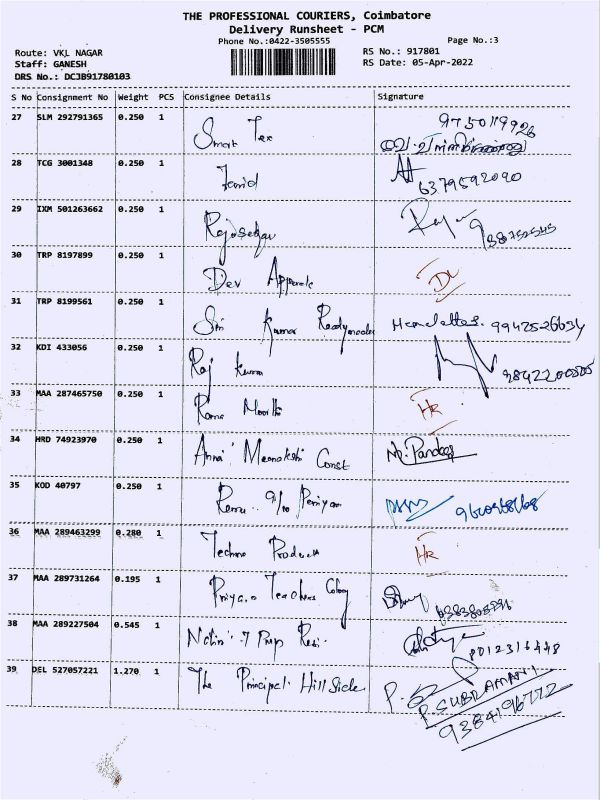 THE PROFESSIONAL COURIERS, Coimbatore
Delivery Runsheet - PCM
Phone No.:0422-3505555
Page No.:3
Route: VKL NAGAR
RS No.: 917801
Staff: GANESH
RS Date: 05-Apr-2022
DRS No.: DCJB91780103
S No Consignment No Weight PCS Consignee Details Signature
27 SLM 292791365 0.250 1 Smart Tex 9750119926
28 TCG 3001348 0.250 1 Farid 6379592090
29 IXM 501263662 0.250 1 Rajasekar
30 TRP 8197899 0.250 1 Dev Apparels DL
31 TRP 8199561 0.250 1 Sri Kumar Readymades 9942526634
32 KDI 433056 0.250 1 Raj Kumar
33 MAA 287465750 0.250 1 Rama Moorthi HR
34 HRD 74923970 0.250 1 Annai Meenakshi Const M. Pandeep
35 KOD 40797 0.250 1 Remu
36 MAA 289463299 0.280 1 Techno Products HR
37 MAA 289731264 0.195 1 Priya Teachers Colony
38 MAA 289227504 0.545 1 8012316448
39 DEL 527057221 1.270 1 The Principal Hill Side
P. SUBRAMANI
9384196772